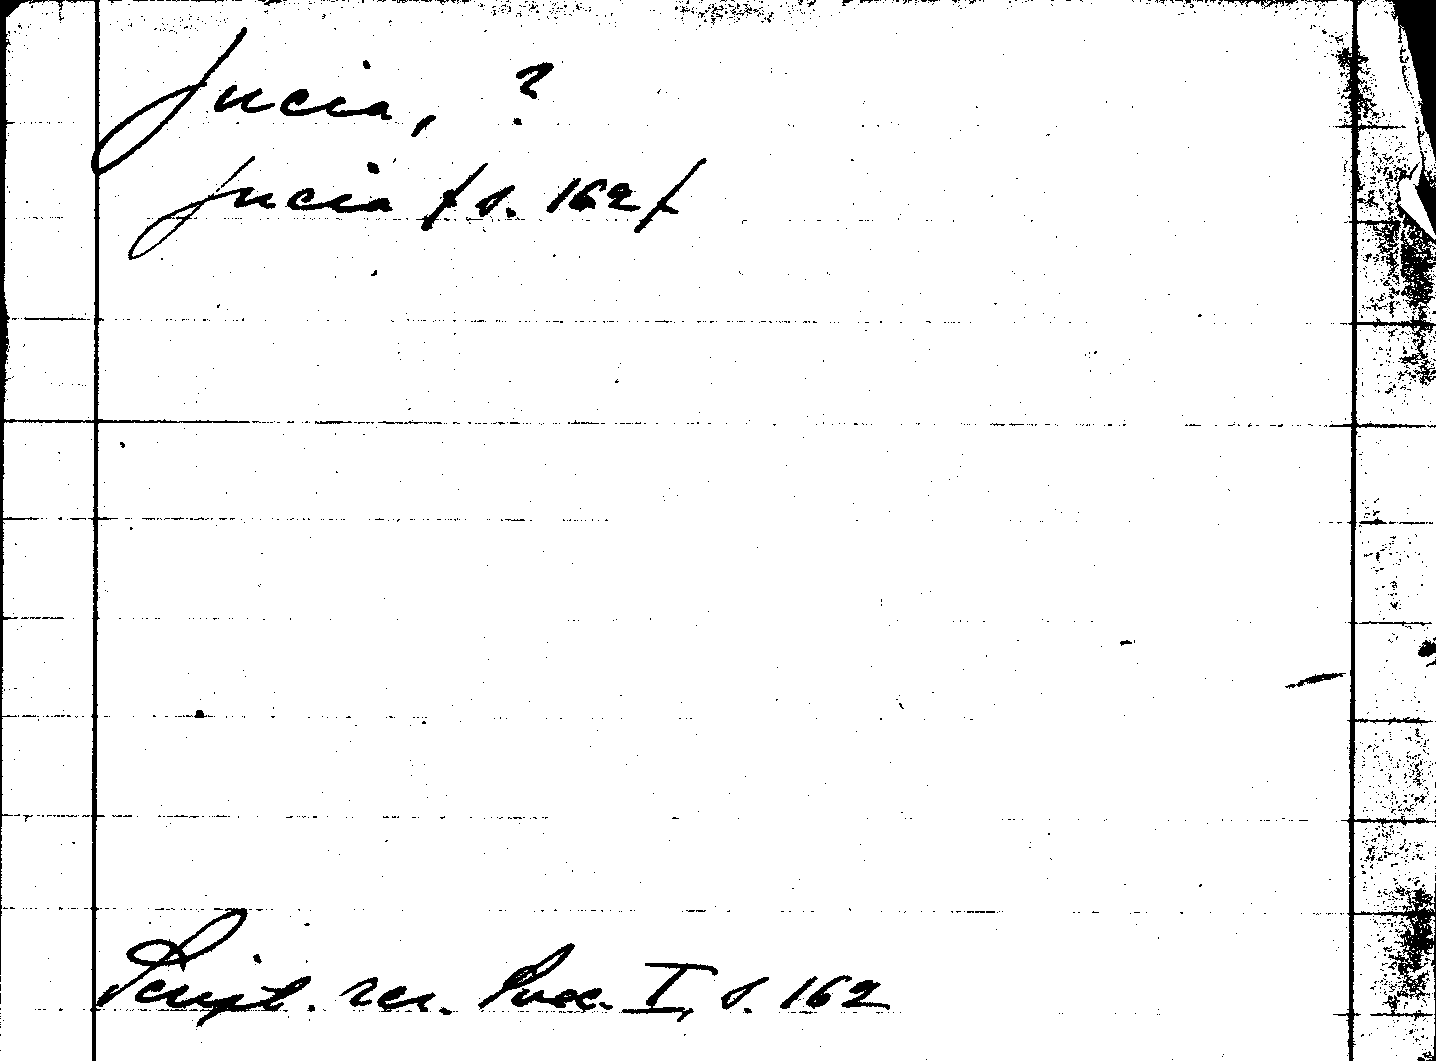 Jucia, ?
Jucia /s. 162/
Script. rer. Svec. I, s. 162